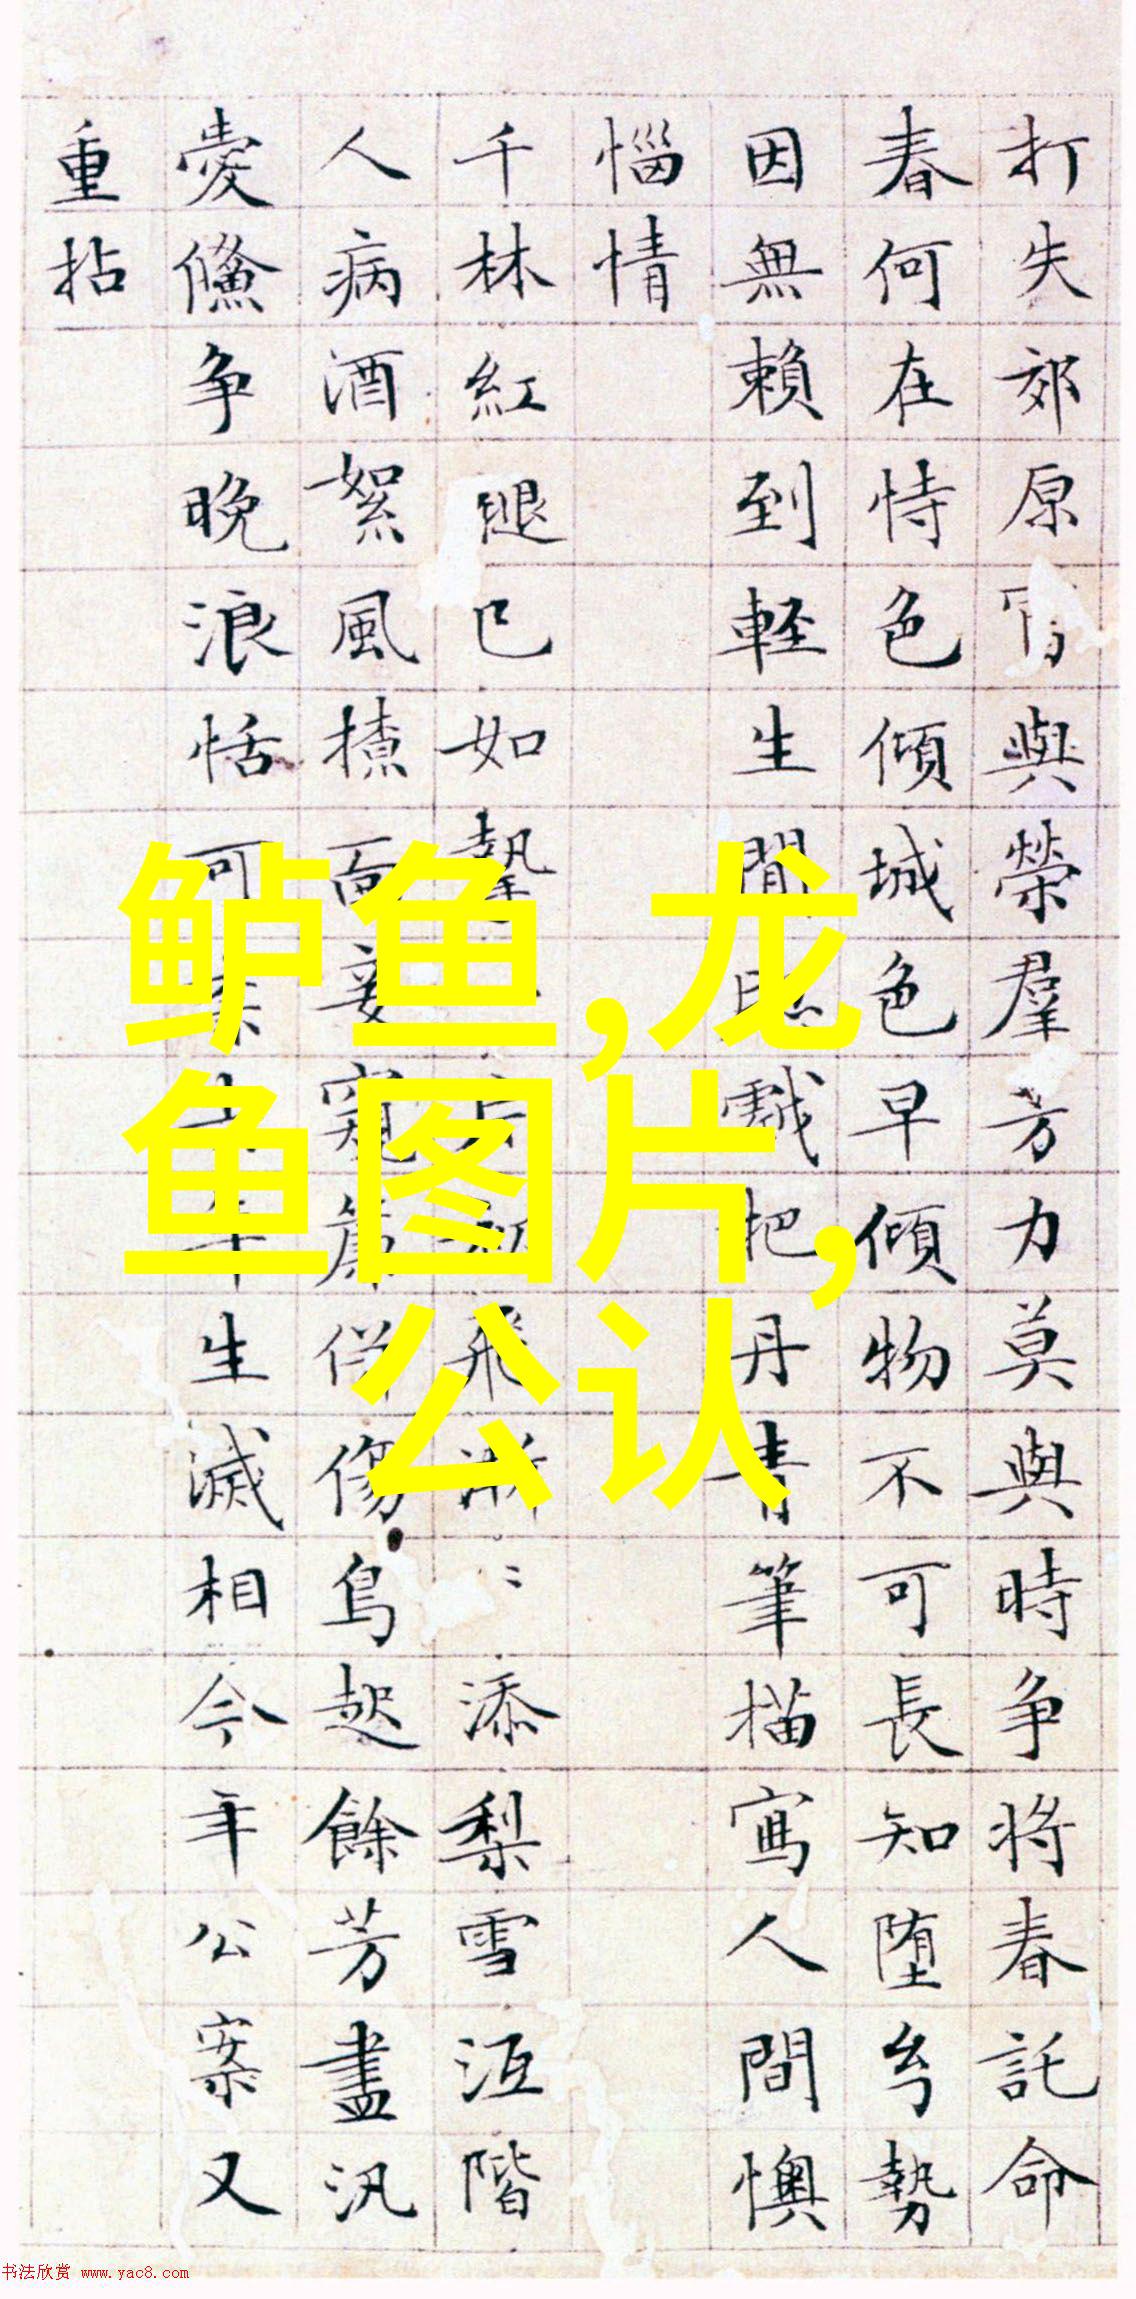 打失郊原 與榮羣芳力莫與時争将春託命
春何在恃色傾城色早傾物不可長知墮𠃔勢
因無賴到輕生閒 戲把丹青筆描寫人間懊
惱情
千林紅腿已如 飛漸〻添梨雪沍階
人病酒絮風揸面妾窺簾 傷鳥起餘芳盡汎
愛 争晚浪恬可 年生滅相今年公案又
重拈
鲈鱼,龙
鱼图片,
公认
书法欣赏 www.yac8.com